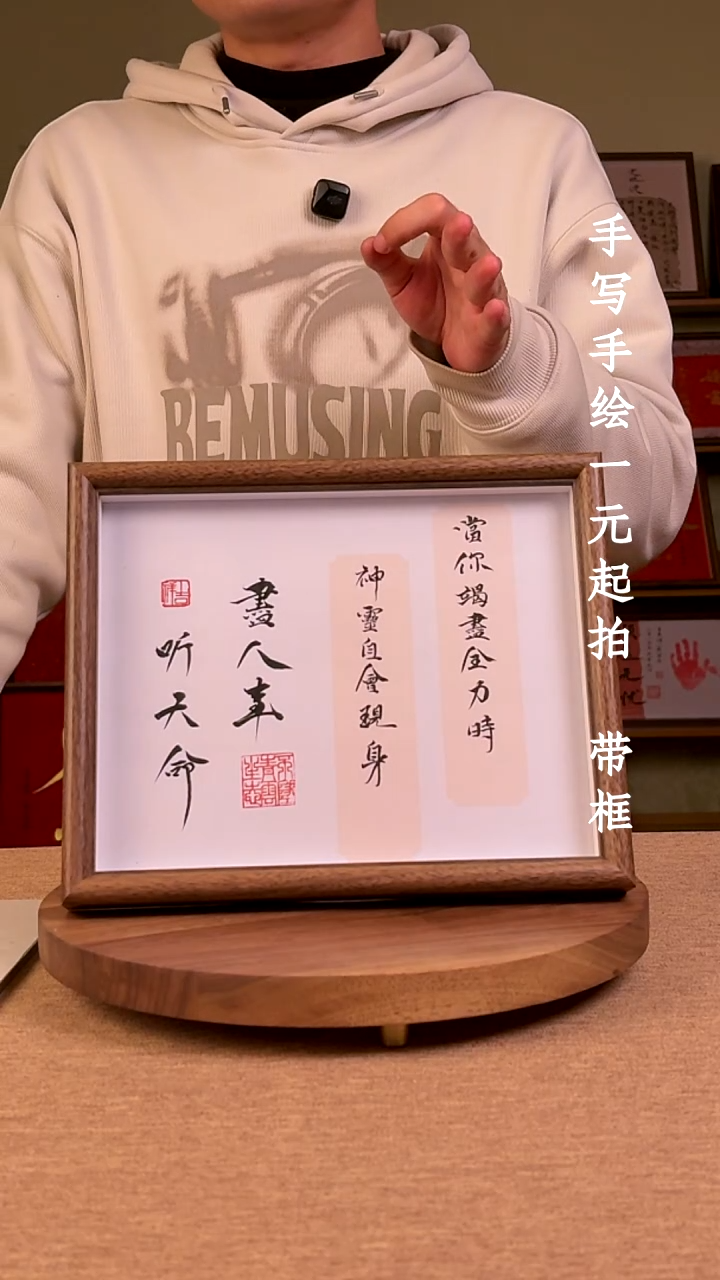 手写手绘一元起拍 带框
當你竭盡全力時
神靈自會現身
盡人事
听天命
BEMUSING